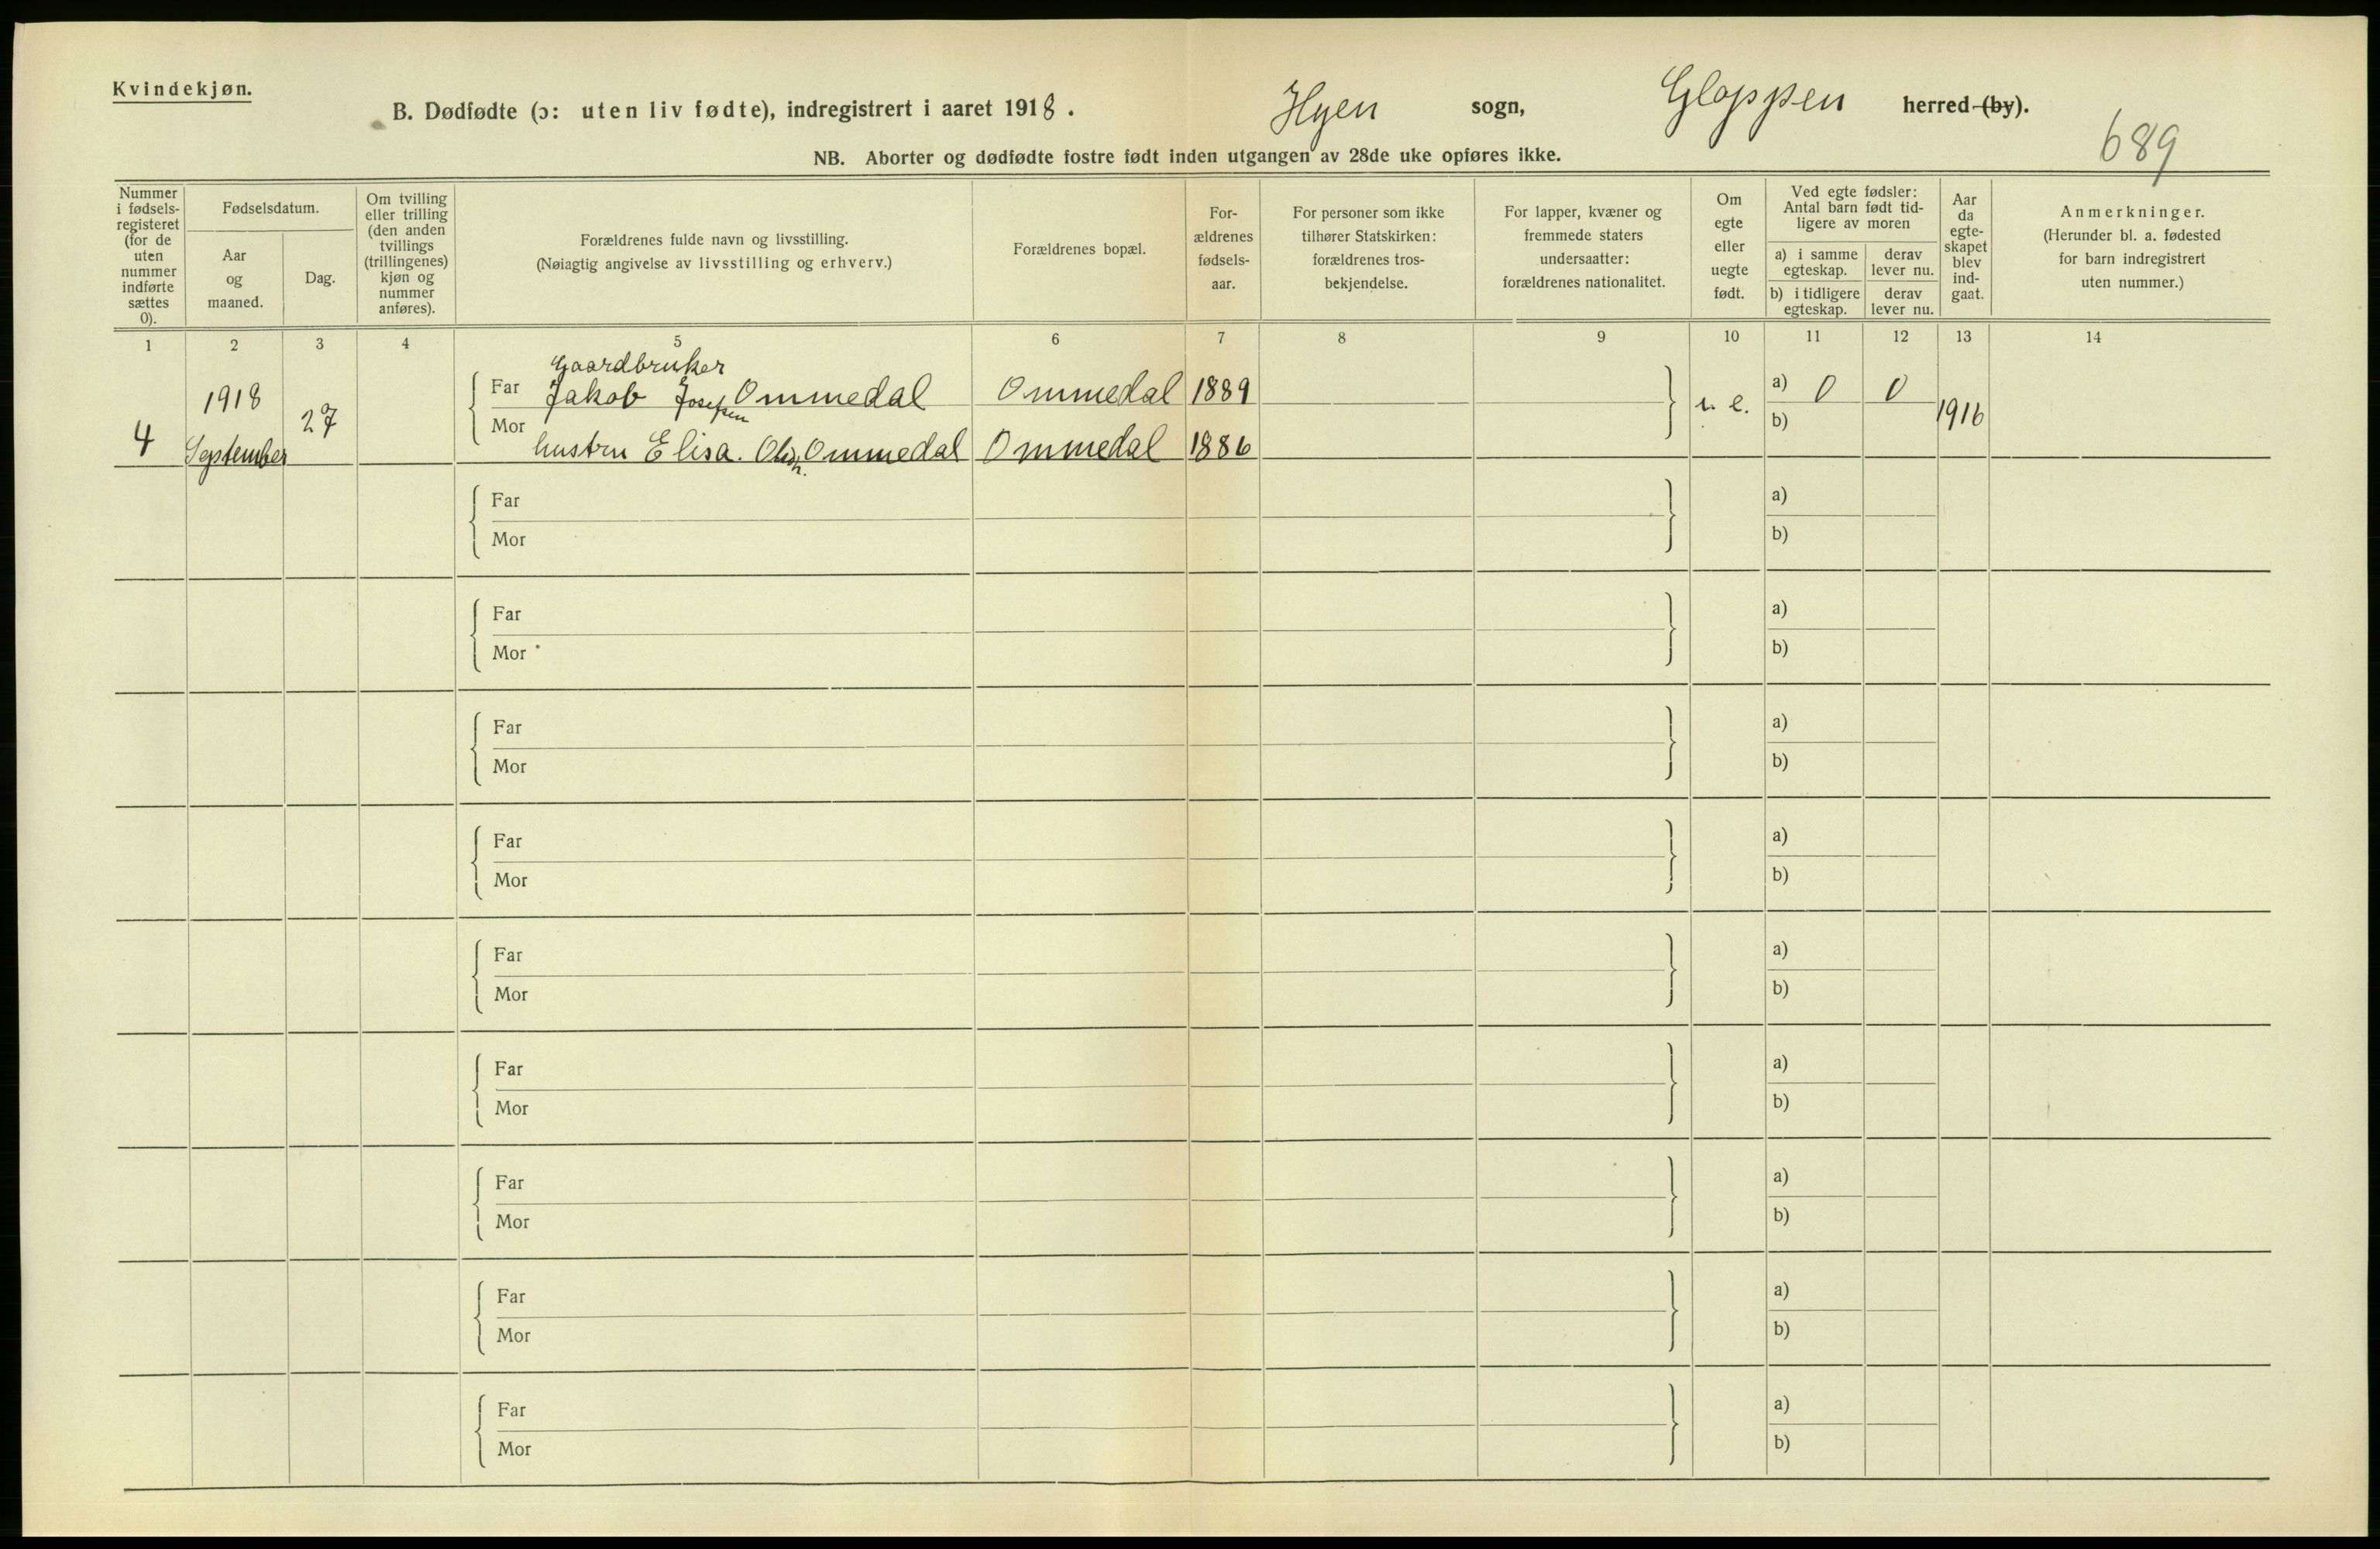 Kvindekjøn.
B. Dødfødte (ɔ: uten liv fødte), indregistrert i aaret 1918. Hyen sogn, Gloppen herred (by).
689
NB. Aborter og dødfødte fostre født inden utgangen av 28de uke opføres ikke.
Nummer i fødsels-registeret (for de uten nummer indførte sættes 0).
Fødselsdatum.
Aar og maaned.
Dag.
Om tvilling eller trilling (den anden tvillings (trillingenes) kjøn og nummer anføres).
Forældrenes fulde navn og livsstilling.
(Nøiagtig angivelse av livsstilling og erhverv.)
Forældrenes bopæl.
For-ældrenes fødsels-aar.
For personer som ikke tilhører Statskirken: forældrenes tros-bekjendelse.
For lapper, kvæner og fremmede staters undersaatter: forældrenes nationalitet.
Om egte eller uegte født.
Ved egte fødsler: Antal barn født tid-ligere av moren
a) i samme egteskap.
derav lever nu.
b) i tidligere egteskap.
derav lever nu.
Aar da egte-skapet blev ind-gaat.
Anmerkninger.
(Herunder bl. a. fødested for barn indregistrert uten nummer.)
1 2 3 4 5 6 7 8 9 10 11 12 13 14
Gaardbruker
4 1918 September 27
Far Jakob Josefsen Ommedal Ommedal 1889
Mor hustru Elisa Ommedal Ommedal 1886
e. a) 0 0 1916
b)
Far a)
Mor b)
Far a)
Mor b)
Far a)
Mor b)
Far a)
Mor b)
Far a)
Mor b)
Far a)
Mor b)
Far a)
Mor b)
Far a)
Mor b)
Far a)
Mor b)